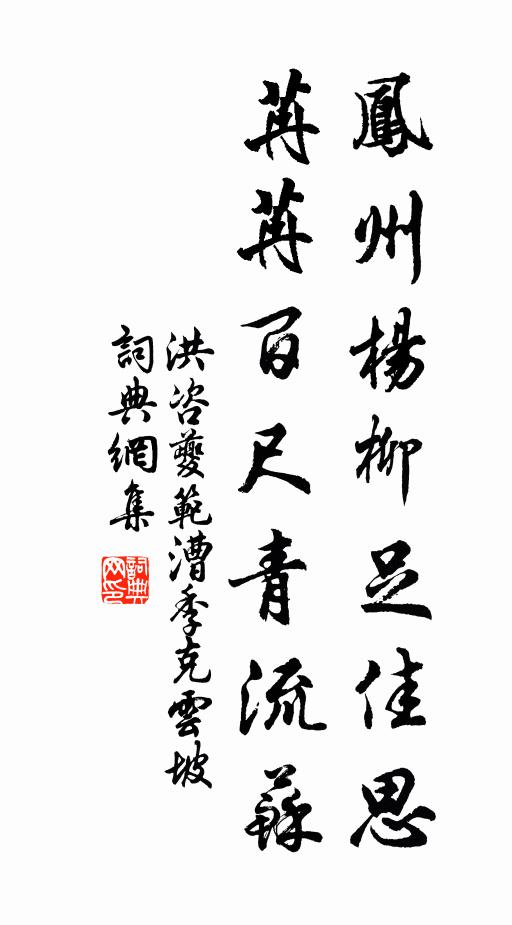 鳳州楊柳足佳思
苒苒百尺青流蘇
洪咨夔範漕季克雲坡
詞典網集
詞典网印